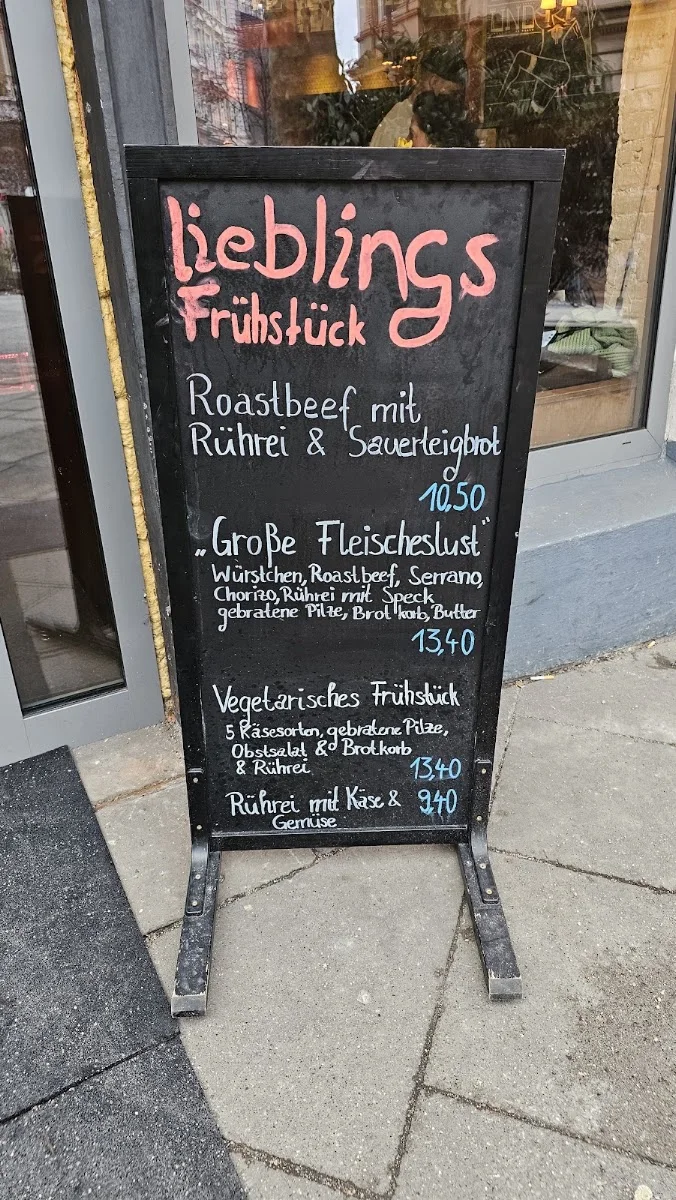 lieblings
Frühstück
Roastbeef mit
Rührei & Sauerteigbrot
10,50
„Große Fleischeslust"
Würstchen, Roastbeef, Serrano,
Chorizo, Rührei mit Speck
gebratene Pilze, Brotkorb, Butter
13,40
Vegetarisches Frühstück
5 Käsesorten, gebratene Pilze,
Obstsalat & Brotkorb
& Rührei 13,40
Rührei mit Käse & 9,40
Gemüse